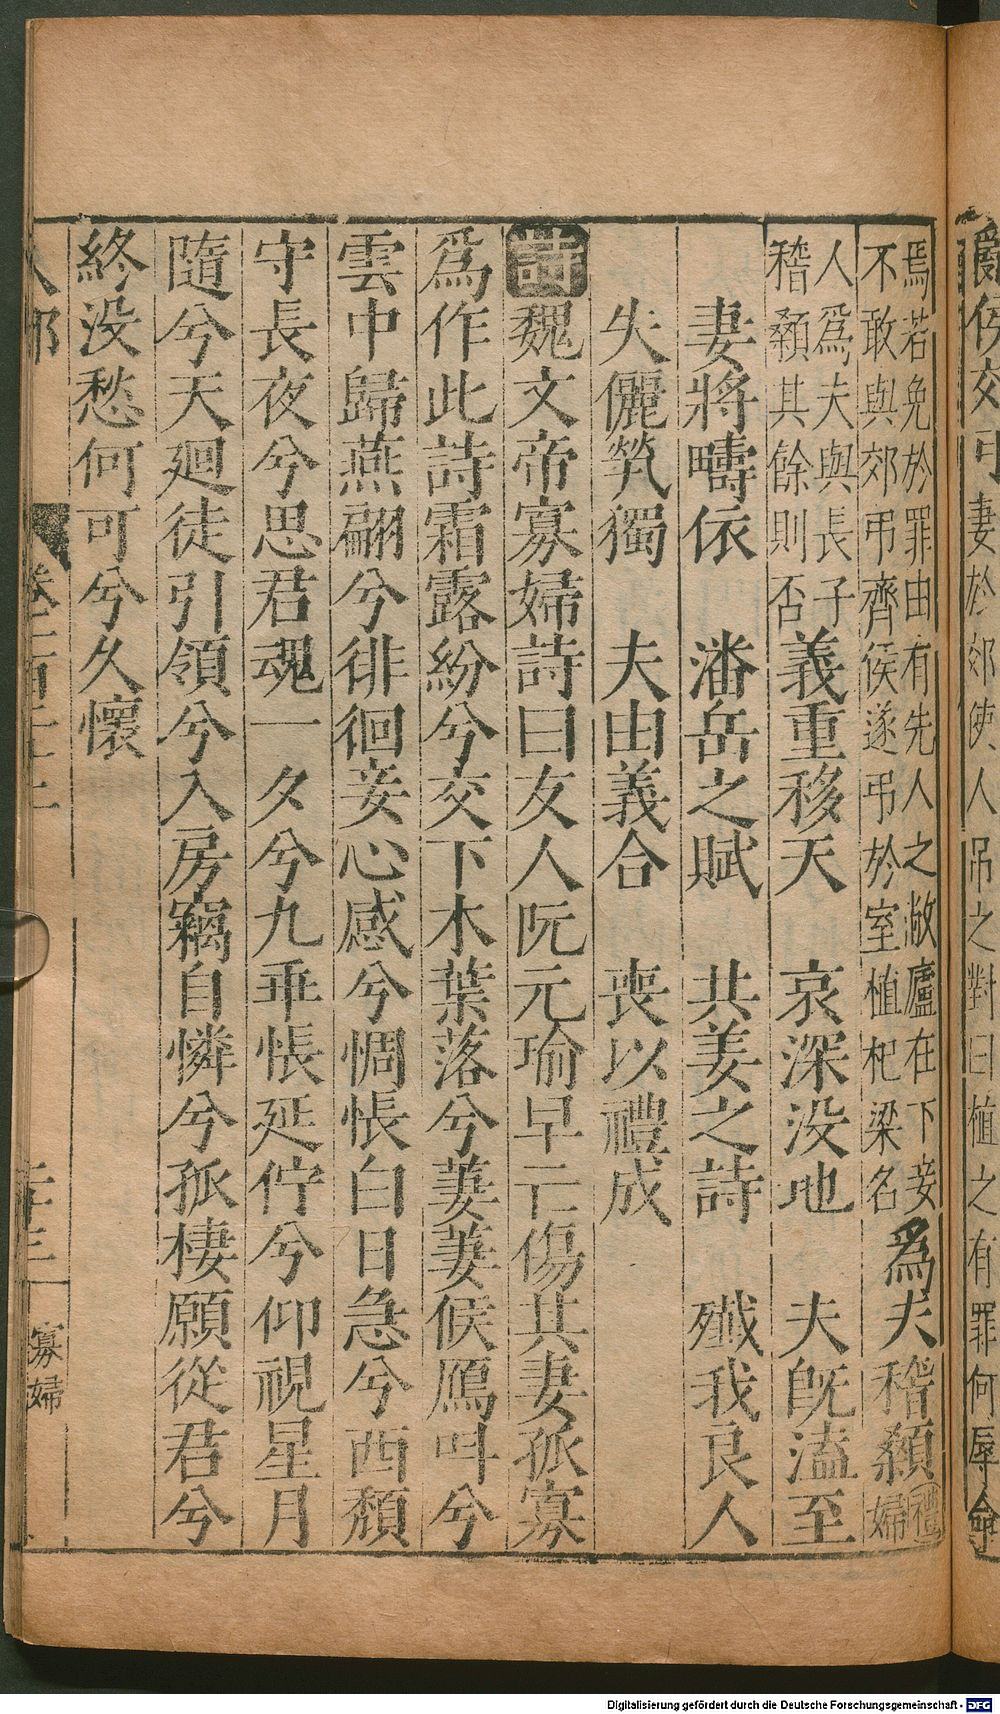 爵侯妻於郊使人吊之對曰植之有罪何辱命
焉若免於罪由有先人之敝廬在下妾
不敢與郊弔齊侯遂弔於室植杞梁名
爲夫稽顙
禮
婦
人爲夫與長子
稽顙其餘則否
義重移天 哀深没地 夫既溘至
妻將疇依 潘岳之賦 共姜之詩 殲我良人
失儷煢獨 夫由義合 喪以禮成
詩魏文帝寡婦詩曰友人阮元瑜早亡傷其妻孤寡
爲作此詩霜露紛兮交下木葉落兮萋萋候鴈叫兮
雲中歸燕翩兮徘徊妾心感兮惆悵白日急兮西頹
守長夜兮思君魂一夕兮九乖悵延佇兮仰視星月
隨兮天廻徒引領兮入房竊自憐兮孤棲願從君兮
終没愁何可兮久懷
人部
二十三
寡婦
Digitalisierung gefördert durch die Deutsche Forschungsgemeinschaft - DFG